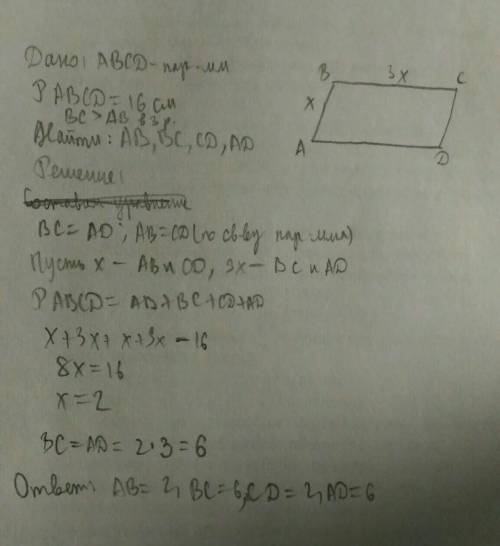 Дано: ABCD-пар-мм
P ABCD=16 см
BC>AB в 3 р.
Найти: AB, BC, CD, AD
Решение:
Составим уравнение
BC=AD; AB=CD (по св-ву пар-мма)
Пусть x - AB и CD, 3x - BC и AD
P ABCD= AD+BC+CD+AD
x+3x+x+3x-16
8x=16
x=2
BC=AD=2·3=6
Ответ: AB=2, BC=6, CD=2, AD=6
B 3x C
x
A D